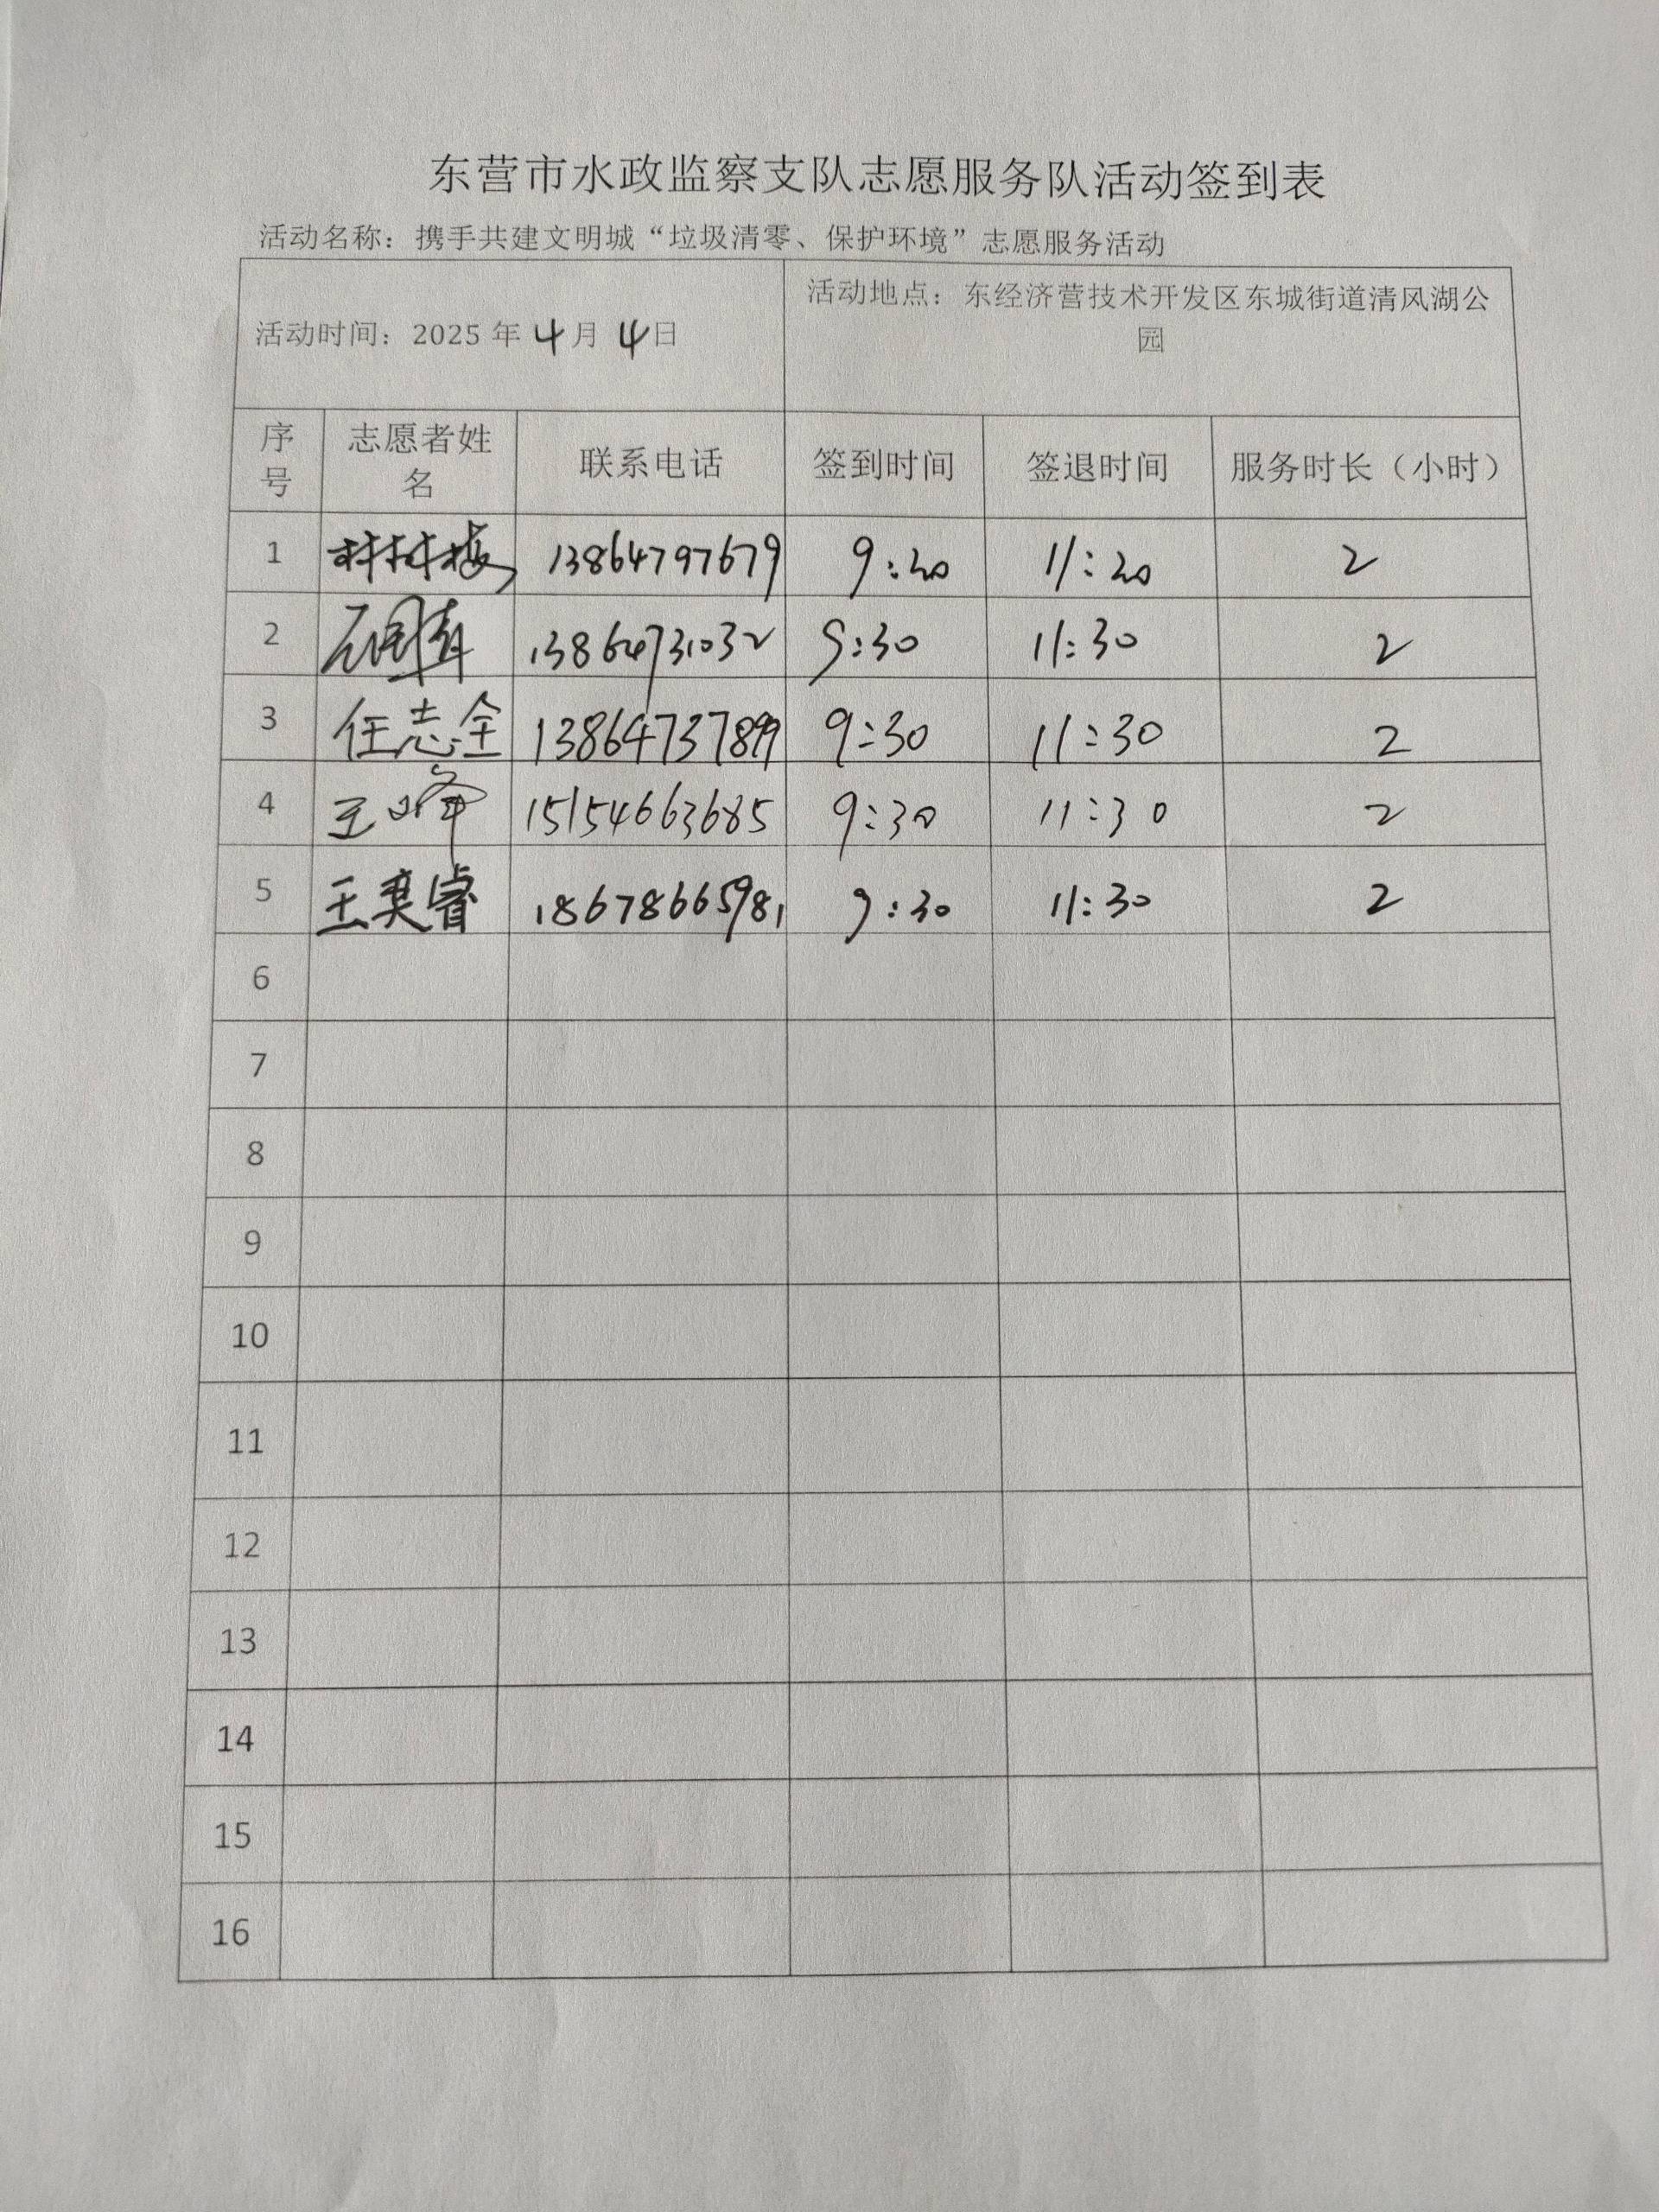 东营市水政监察支队志愿服务队活动签到表
活动名称：携手共建文明城“垃圾清零、保护环境”志愿服务活动
活动时间：2025 年 4 月 4 日
活动地点：东经济营技术开发区东城街道清风湖公
园
序号 志愿者姓名 联系电话 签到时间 签退时间 服务时长（小时）
1 13864797679 9:20 11:20 2
2 13864731032 9:30 11:30 2
3 任志全 9:30 11:30 2
4 王峰 15154663685 9:30 11:30 2
5 王奕睿 18678665981 9:30 11:30 2
6
7
8
9
10
11
12
13
14
15
16